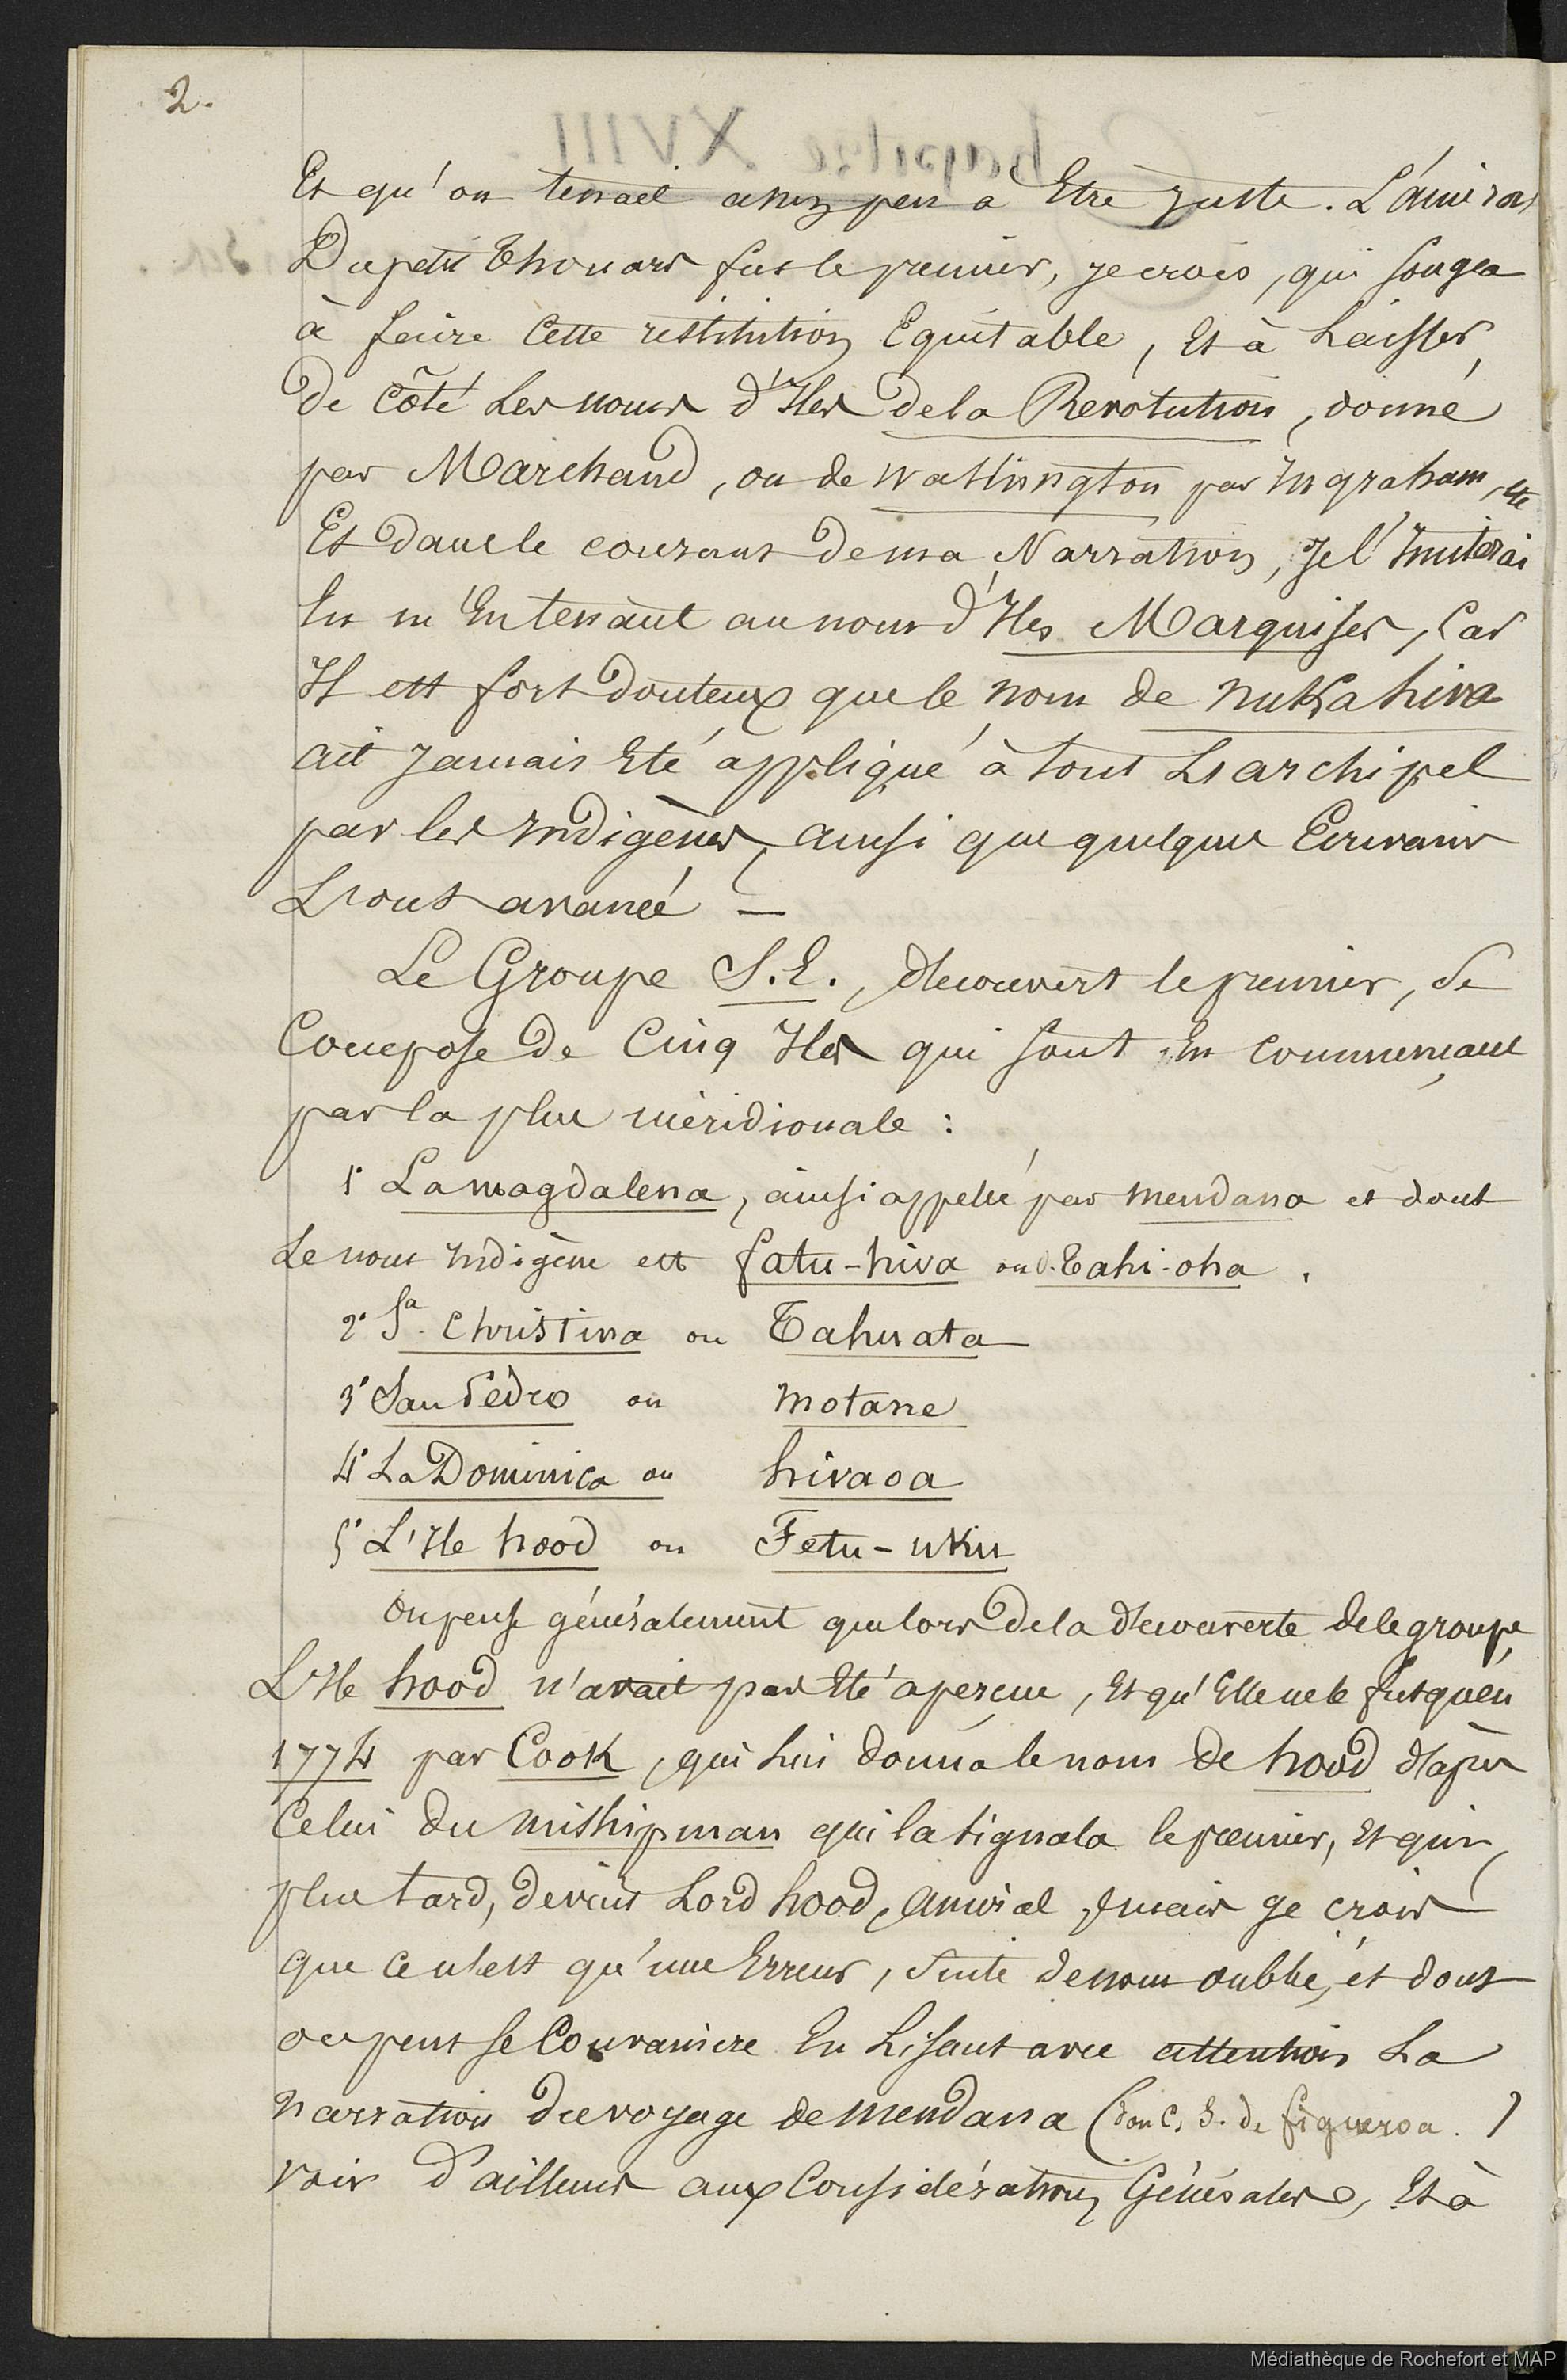 2.
Et qu'on tenait assez peu à Etre juste. L'amiral
Dupetit Thouars fut le premier, je crois, qui songea
à faire Cette restitution Equitable, Et à Laisser
De Côté Les noms d'Iles de la Révolution, donné
par Marchand, ou de Washington par Ingraham, etc
Et dans le courant de ma Narration, je l'Imiterai
En m'En tenant au nom d'Iles Marquises, Car
Il est fort Douteux que le nom de nuKahiva
ait Jamais Eté appliqué à tout L'archipel
par les Indigènes, ainsi que quelques Ecrivains
L'ont avancé —
Le Groupe S.E., découvert le premier, se
Compose De Cinq Iles qui sont En commençant
par la plus méridionale :
1° La magdalena, ainsi appelée par mendana et dont
Le nom Indigène est fatu-hiva ou O.Tahi-oha.
2° Sa. Christina ou Tahuata
3° San Pédro ou motane
4° La Dominica ou hivaoa
5° L'Ile hood ou Fetu-uKu
On pense généralement que lors de la découverte de le groupe
L'Ile hood n'avait pas Eté aperçue, Et qu'Elle ne le fut qu'en
1774 par CooK, qui Lui donna le nom de hood d'après
Celui du mishipman qui la signala le premier, Et qui,
plus tard, devint Lord hood, amiral, mais je crois
que ce n'est qu'une Erreur, suite de nom oublié, et dont
on peut se Convaincre En Lisant avec attention La
narration du voyage de mendana (Don C. S. de figueroa.)
voir d'ailleurs aux Considérations Générales, Et à
Médiathèque de Rochefort et MAP